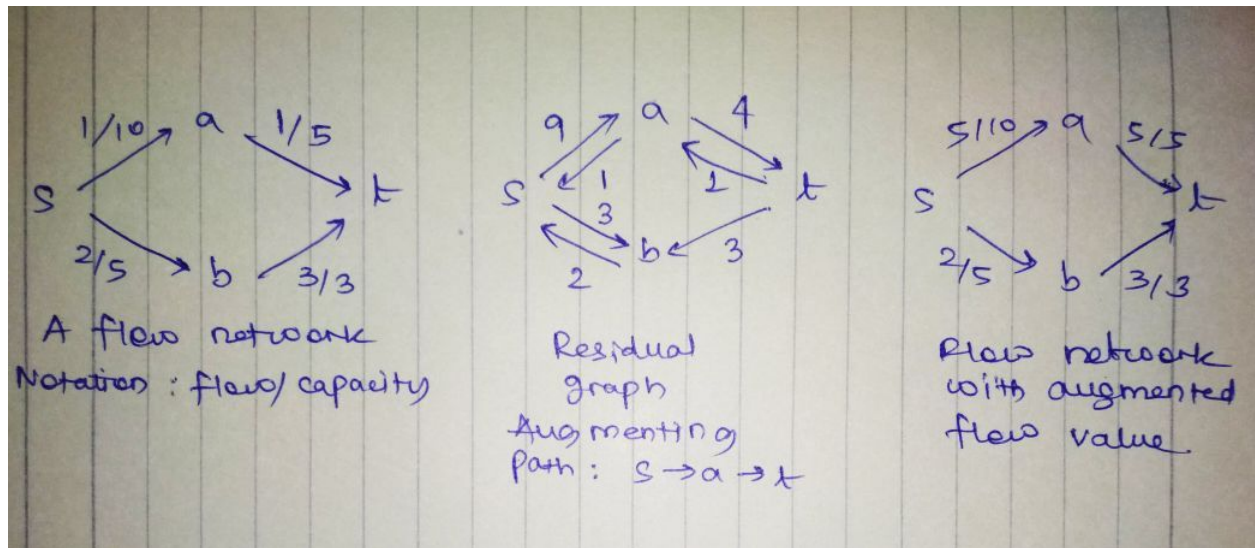 1/10 a 1/5
s t
2/5 b 3/3
A flow network
Notation : flow/capacity
9 a 4
1 1
s t
3
b 3
2
Residual
graph
Augmenting
path : s → a → t
5/10 a 5/5
s t
2/5 b 3/3
Flow network
with augmented
flow value.